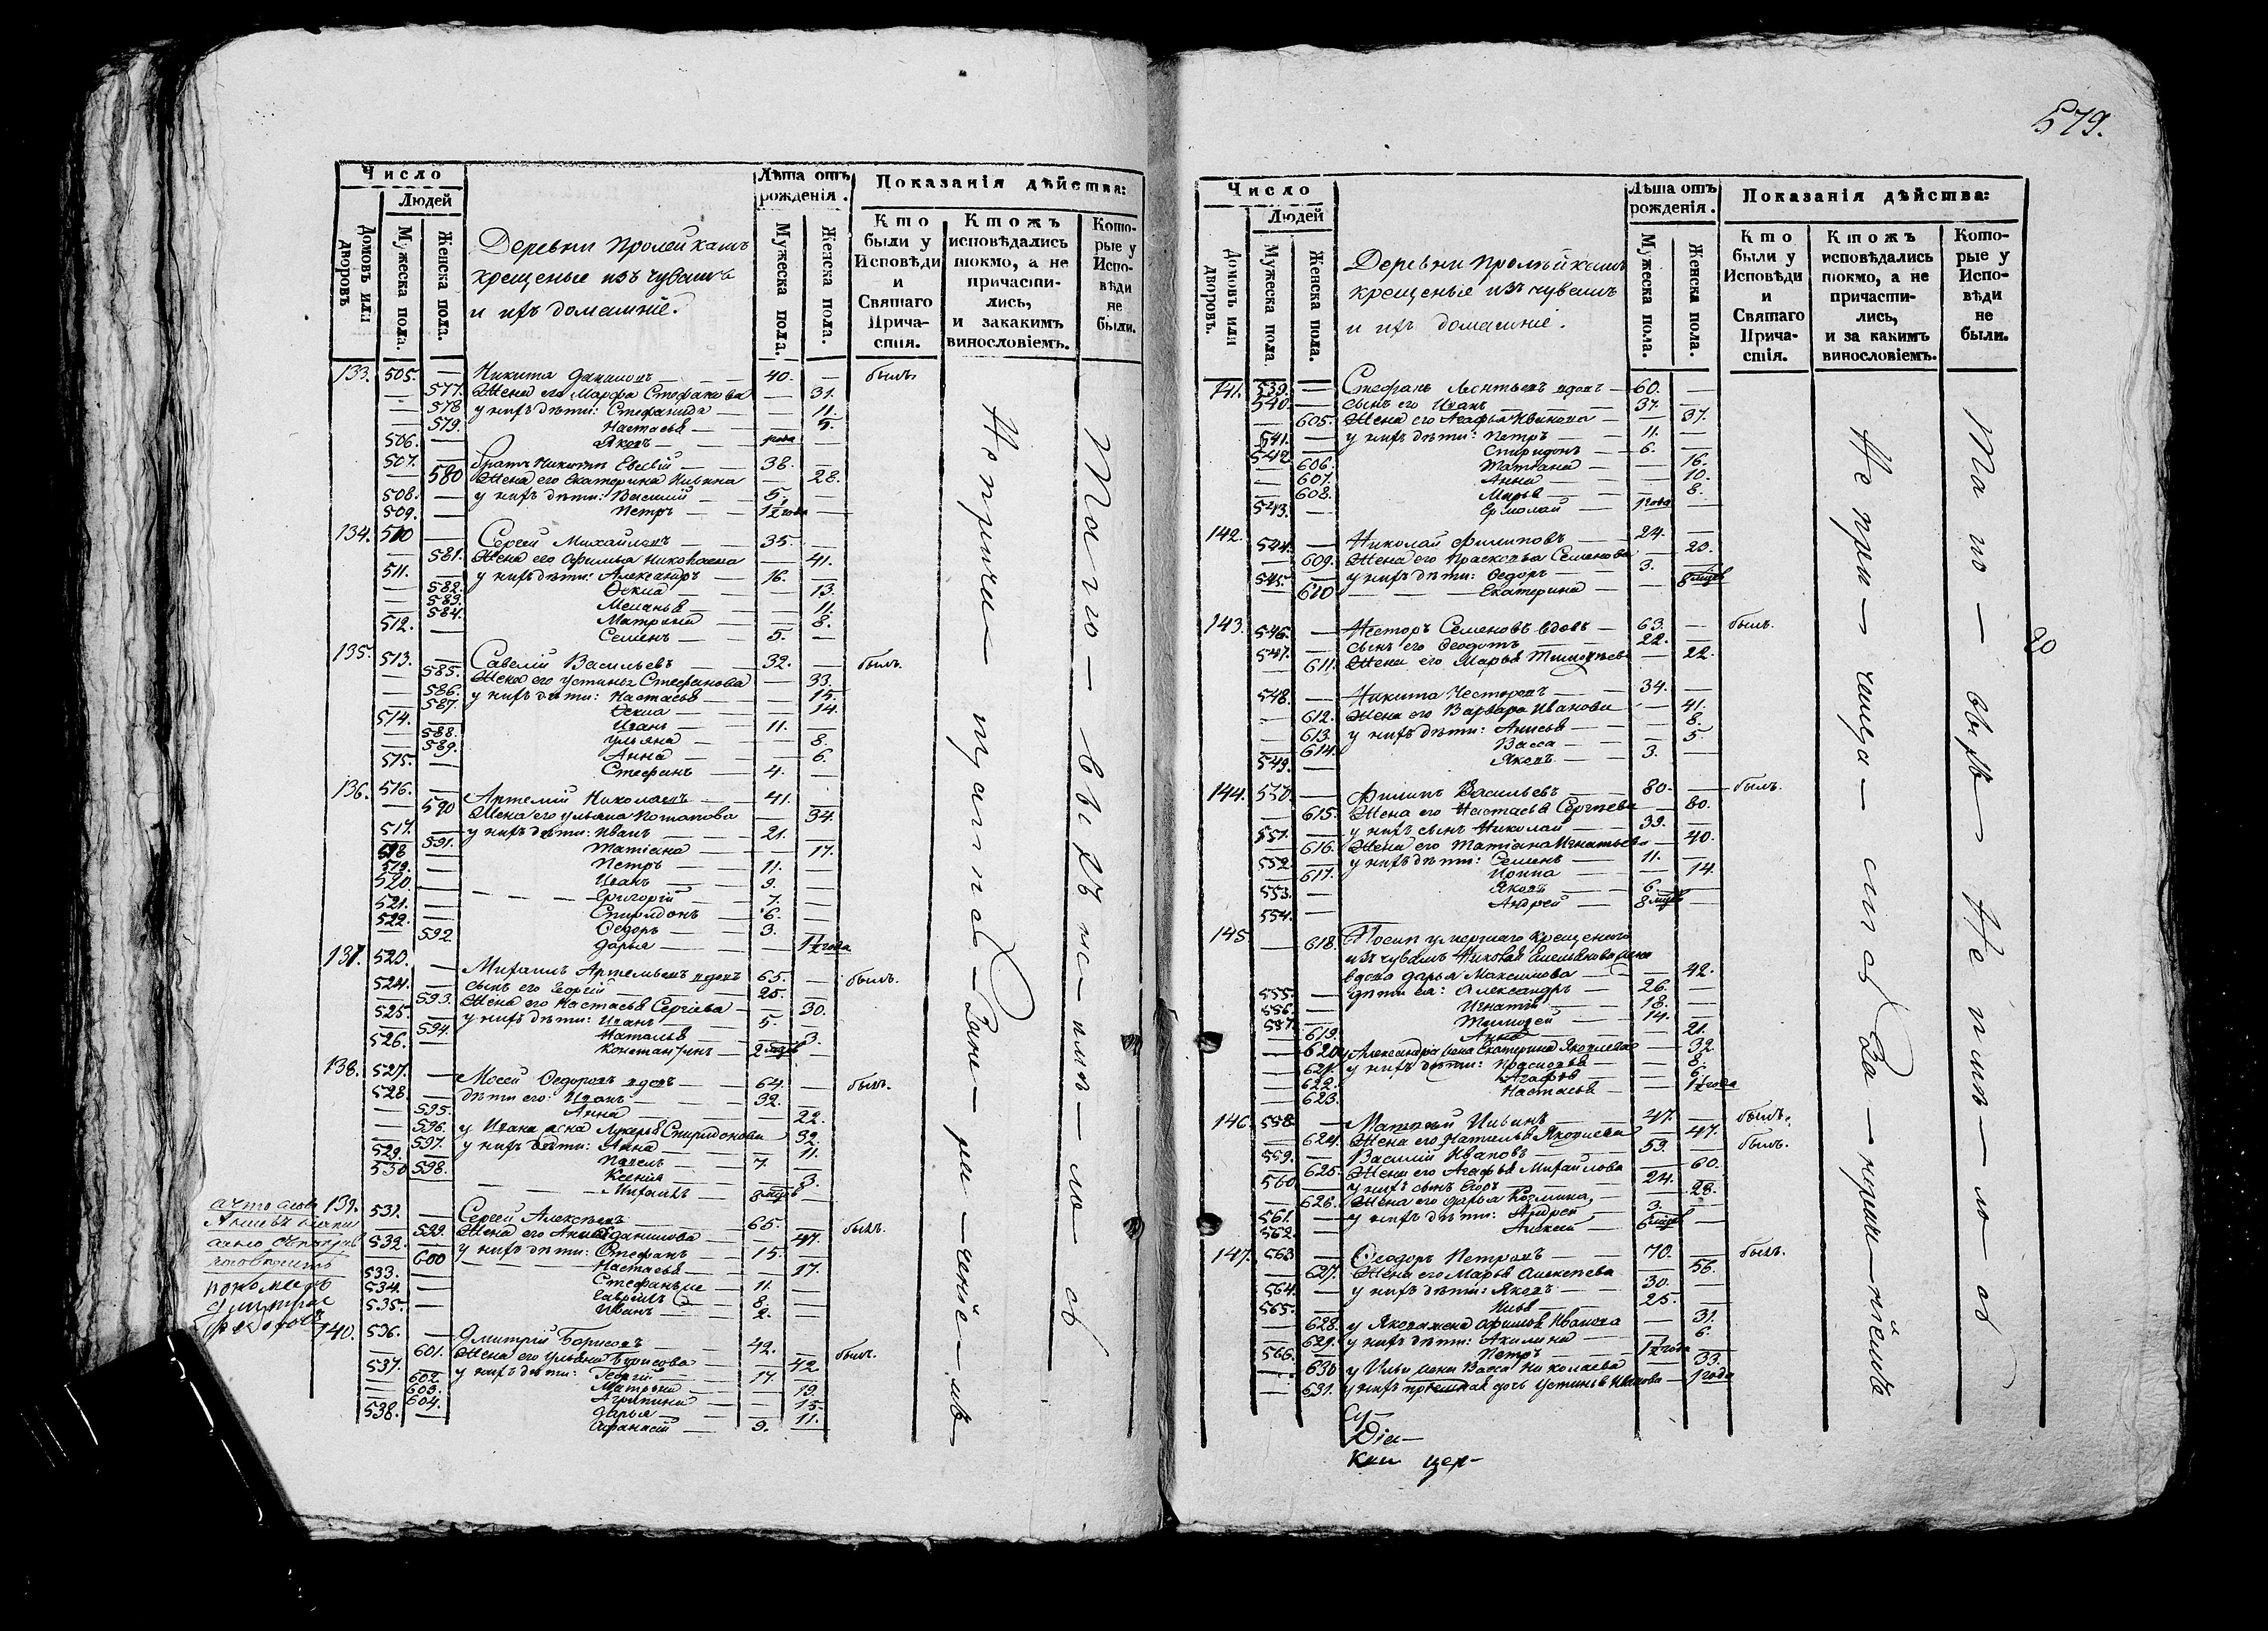 Число
Людей
Домовъ или дворовъ
Мужеска пола.
Женска пола.
Деревни Пролейкашъ
крещеные изъ чувашъ
и ихъ домашніе.
Лѣта отъ рожденія.
Мужеска пола.
Женска пола.
Показанія дѣйства:
Кто были у Исповѣди и Святаго Причастія.
Ктожъ исповѣдались токмо, а не причастились, и закакимъ винословіемъ.
Которые у Исповѣди не были.
133. 505. — Никита Данилов — 40. — былъ.
— 577. Жена его Марфа Стефанова — 31.
— 578 у нихъ дѣти: Стефанида — 11.
579. Настасья — 5.
506. — Яковъ — 1 года —
507. — братъ Никиты Евсевій — 38. —
— 580 Жена его Екатерина Ильина — 28.
508. — у нихъ дѣти: Василий — 5. —
509. — Петръ — 1½ года —
134. 510 — Сергей Михайловъ — 35. —
— 581. Жена его Афимья Николаева — 41.
511. — у нихъ дѣти: Александръ — 16. —
— 582. Фекла — 13.
— 583. Меланья — 11.
— 584. Матрена — 8.
512. — Семенъ — 5. —
135. 513. — Савелій Васильевъ — 32. — былъ.
— 585. Жена его Устинья Стефанова — 33.
— 586. у нихъ дѣти: Настасья — 15.
— 587. Фекла — 14.
514. — Иванъ — 11. —
— 588. Ульяна — 8.
— 589. Анна — 6.
515. — Стефанъ — 4. —
136. 516. — Артемій Николаевъ — 41. —
— 590 Жена его Ульяна Потапова — 34.
517. — у нихъ дѣти: Иванъ — 21. —
591. Татіана — 17.
518 — Петръ — 11. —
519. — Иванъ — 9. —
520. — Григорій — 7. —
521. — Спиридонъ — 6. —
522. — Федоръ — 3. —
592. Дарья — 1½ года
137. 520. — Михаилъ Артемьевъ вдовъ — 65. — былъ.
524. — сынъ его Георгій — 25. —
— 593. Жена его Настасья Сергіева — 30.
525. — у нихъ дѣти: Иванъ — 5. —
— 594. Наталья — 3.
526. — Константинъ — 2 мѣсяц —
138. 527. — Мосей Федоровъ вдовъ — 64. — былъ.
528. — дѣти его: Иванъ — 32. —
— 595. Анна — 22.
— 596. у Ивана жена Лукерья Спиридонова — 32.
— 597. у нихъ дѣти: Анна — 11.
529. — Павелъ — 7. —
598. Ксенія — 3.
530 — Михаилъ — 8 мѣсяц —
139. 531. — Сергей Алексѣевъ — 65. — былъ.
— 599. Жена его Данилова — 47.
532. — у нихъ дѣти: Стефанъ — 15. —
600 — Настасья — 17.
533. — Стефанъ же — 11. —
534. — Гавріилъ — 8. —
535. — Иванъ — 2. —
140. 536. — Дмитрій Борисовъ — 42. — былъ.
— 601. Жена его Ульяна Борисова — 42.
537. — у нихъ дѣти: Георгій — 17 —
— 602. Матрена — 19.
— 603. Агрипина — 15.
— 604. Дарья — 11.
538. — Афанасій — 9. —
Не прича—
Того— — — ло— объ
579.
Число
Людей
Домовъ или дворовъ.
Мужеска пола
Женска пола.
Деревни Пролѣйкашъ
крещеные изъ чувашъ
и ихъ домашніе.
Лѣта отъ рожденія.
Мужеска пола.
Женска пола.
Показанія дѣйства:
Кто были у Исповѣди и Святаго Причастія.
Ктожъ исповѣдались токмо, а не причастились, и за какимъ винословіемъ.
Которые у Исповѣди не были.
141. 539. — Стефанъ Леонтьевъ вдовъ — 60. —
540. — сынъ его Иванъ — 37. —
— 605. Жена его Агафья Иванова — 37.
541. — у нихъ дѣти: Петръ — 11. —
542. — Спиридонъ — 6. —
606. Татіана — 16.
— 607. Анна — 10.
— 608. Марья — 8.
543. — Ермолай — 1 года —
142. 544. — Николай Филиповъ — 24. —
— 609. Жена его Прасковья Семенова — 20.
545. — у нихъ дѣти: Федоръ — 3. —
— 610 — Екатерина — 8 мѣсяц
143. 546. — Несторъ Семеновъ вдовъ — 63. — былъ.
547. — сынъ его Феодотъ — 22. —
— 611. Жена его Марья Тимофѣева — 22.
548. — Никита Несторовъ — 34. —
— 612. Жена его Варвара Иванова — 41.
— 613. у нихъ дѣти: Анисья — 8.
— 614. Васса — 5
549. — Яковъ — 3. —
144. 550. — Филипъ Васильевъ — 80. — былъ.
— 615. Жена его Настасья Сергѣева — 80.
551. — у нихъ сынъ Николай — 39. —
— 616. Жена его Татіана Игнатьева — 40.
552. — у нихъ дѣти: Семенъ — 11. —
— 617. — 14.
553. — Яковъ — 6 —
554. — Андрей — 8 мѣсяц —
145. — 618. Послѣ умершаго крещенаго
изъ чувашъ
вдова Дарья Максимова — 42.
555. — дѣти ея: Александръ — 26. —
556. — Игнатій — 18. —
557. — Тимофей — 14. —
— 619. Анна — 21.
— 620 у Александра жена Екатерина Яковлева — 32
— 621. у нихъ дѣти: Прасковья — 8.
— 622. Агафья — 6.
— 623. Настасья — 1½ года
146. 558. — Матвей Ильинъ — 47. — былъ.
— 624. Жена его Наталья Яковлева — 47.
559. — Василий Ивановъ — 59. — былъ.
— 625. Жена его Агафья Михайлова — 60.
560 — у нихъ сынъ Егоръ — 24. —
— 626. Жена его Дарья Козмина — 28.
561. — у нихъ дѣти: Андрей — 3. —
562. — Алексей — 6 мѣсяц —
147. 563 — Феодоръ Петровъ — 70. — былъ.
— 627. Жена его Марья Алексѣева — 56.
564. — у нихъ дѣти: Яковъ — 30. —
565. — Илья — 25. —
— 628. у Якова жена Афимья Иванова — 31.
— 629. у нихъ дѣти: Акилина — 6.
566. — Петръ — 1½ года
— 630 у Ильи жена Васса Николаева — 33.
— 631. у нихъ дочь Устинья Иванова — 1 года
Не при—